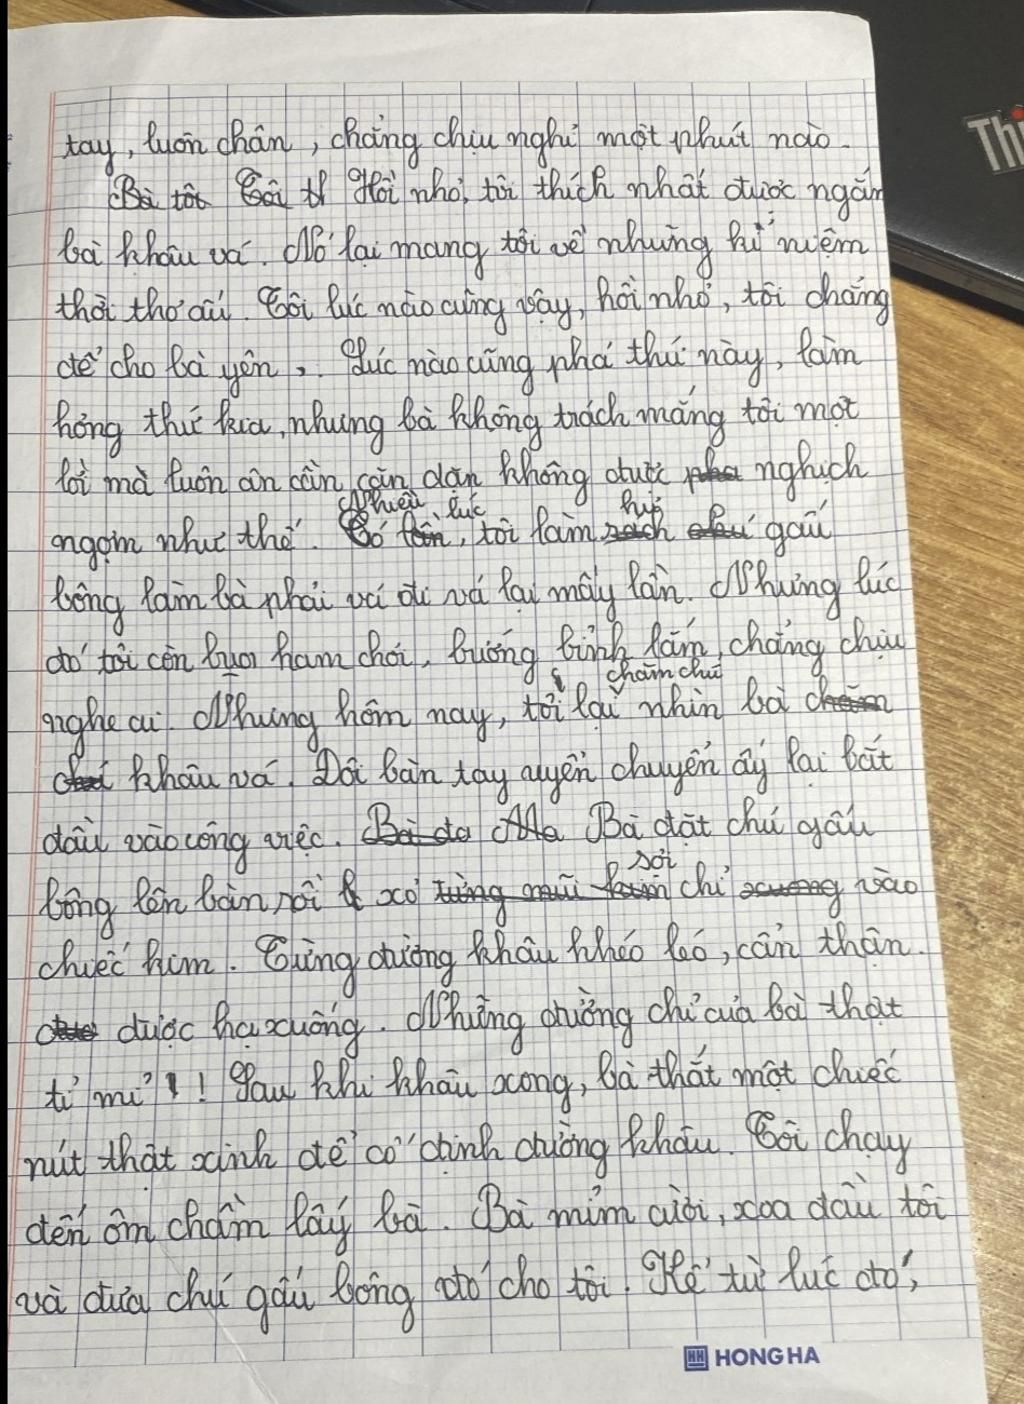 tay, luôn chân, chẳng chịu nghỉ một phút nào.
Bà tôi Tôi th Hồi nhỏ, tôi thích nhất được ngắm
bà khâu vá. Nó lại mang tôi về những kỉ niệm
thời thơ ấu. Tôi lúc nào cũng vậy, hồi nhỏ, tôi chẳng
để cho bà yên,. Lúc nào cũng phá thứ này, làm
hỏng thứ kia, nhưng bà không trách mắng tôi một
lời mà luôn ân cần căn dặn không được phá nghịch
Nhiều lúc hư
ngợm như thế. Có lần, tôi làm rách chú gấu
bông làm bà phải vá đi vá lại mấy lần. Nhưng lúc
đó tôi còn ham chơi, bướng bỉnh lắm, chẳng chịu
chăm chú
nghe ai. Nhưng hôm nay, tôi lại nhìn bà chăm
chú khâu vá. Đôi bàn tay uyển chuyển ấy lại bắt
đầu vào công việc. Bà đa Ma Bà đặt chú gấu
sợi
bông lên bàn rồi xỏ từng mũi kim chỉ xuống vào
chiếc kim. Từng đường khâu khéo léo, cẩn thận.
được hạ xuống. Những đường chỉ của bà thật
tỉ mỉ! Sau khi khâu xong, bà thắt một chiếc
nút thật xinh để cố định đường khâu. Tôi chạy
đến ôm chầm lấy bà. Bà mỉm cười, xoa đầu tôi
và đưa chú gấu bông đó cho tôi. Kể từ lúc đó,
HONG HA
Thi